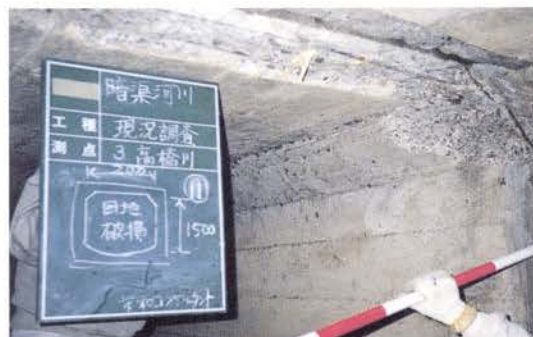 暗渠河川
工種 現況調査
測点 3 高橋川
⑪
目地
破損
1500